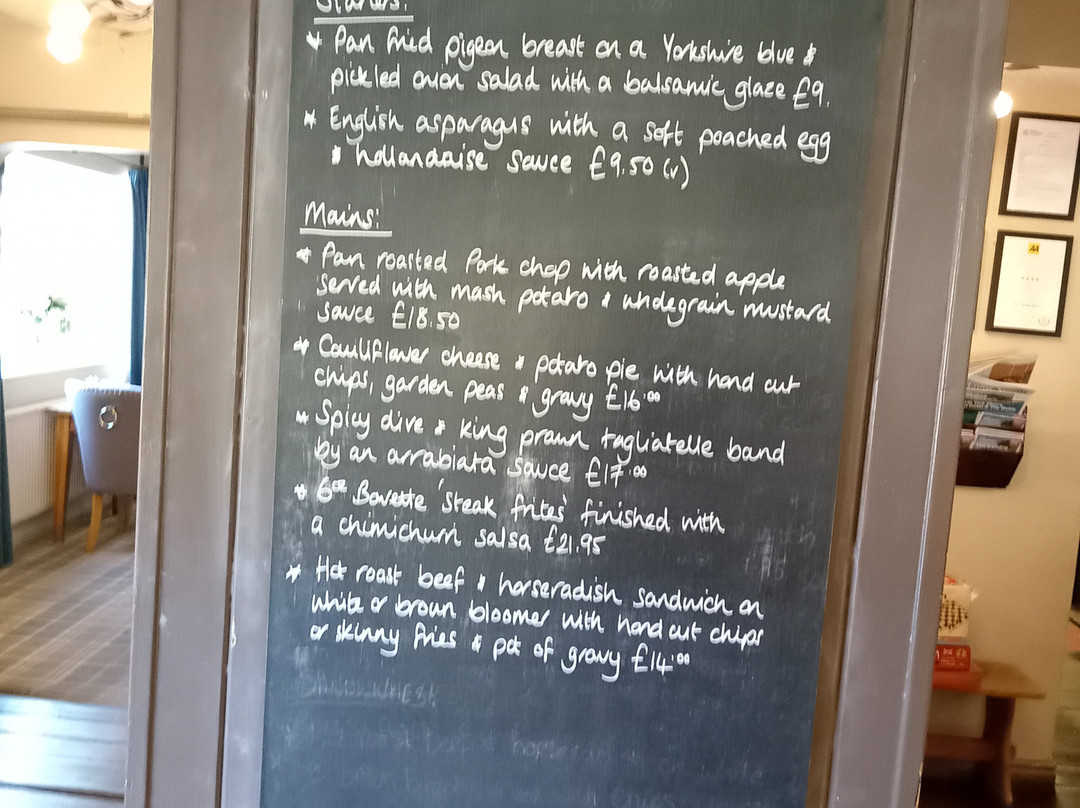 Starters:
* Pan fried pigeon breast on a Yorkshire blue &
pickled onion salad with a balsamic glaze £9.
* English asparagus with a soft poached egg
& hollandaise sauce £9.50 (v)
Mains:
* Pan roasted Pork chop with roasted apple
served with mash potato & wholegrain mustard
sauce £18.50
* Cauliflower cheese & potato pie with hand cut
chips, garden peas & gravy £16.00
* Spicy olive & king prawn tagliatelle band
by an arrabiata sauce £17.00
* 6oz Bavette 'steak frites' finished with
a chimichurri salsa £21.95
* Hot roast beef & horseradish sandwich on
white or brown bloomer with hand cut chips
or skinny fries & pot of gravy £14.00
AA